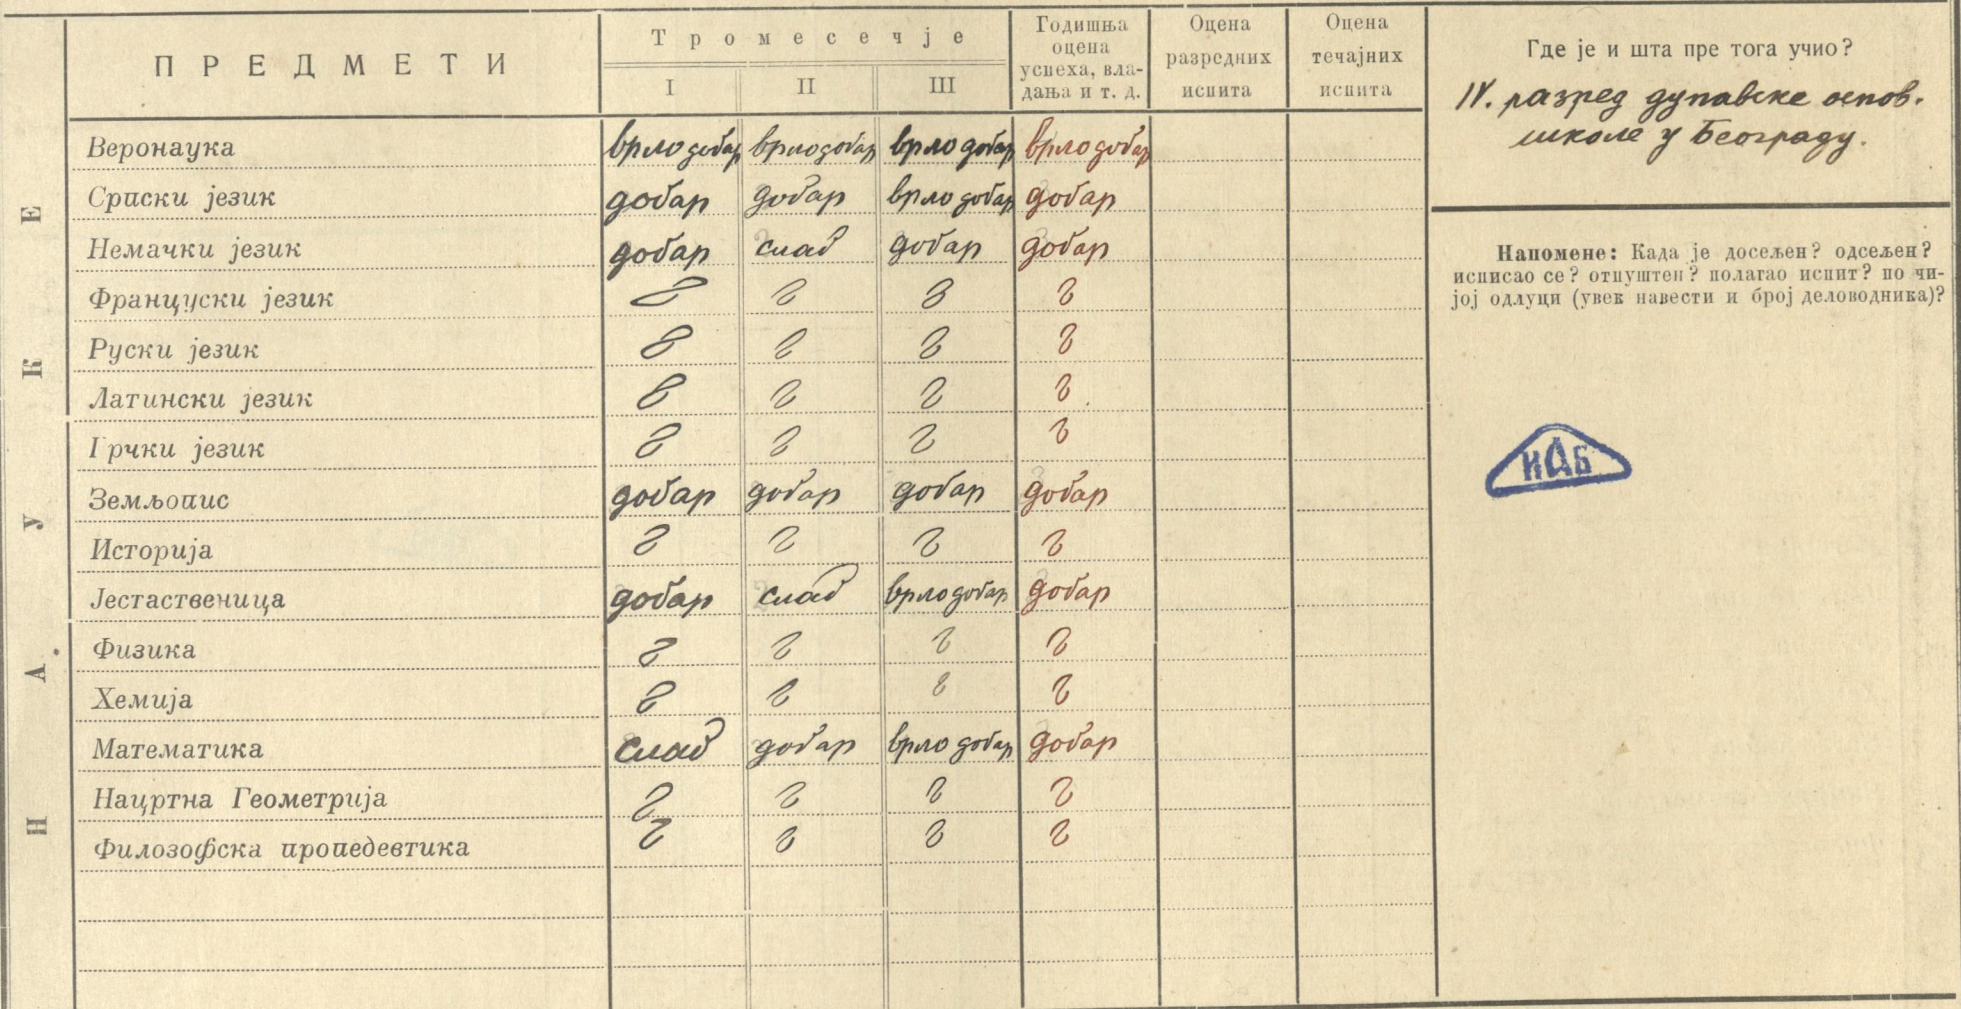 ПРЕДМЕТИ
Тромесечје
I II III
Годишња оцена успеха, вла-дања и т. д.
Оцена разредних испита
Оцена течајних испита
НАУКЕ
Веронаука врло добар врло добар врло добар врло добар
Српски језик добар добар врло добар добар
Немачки језик добар слаб добар добар
Француски језик
Руски језик
Латински језик
Грчки језик
Земљопис добар добар добар добар
Историја
Јестаственица добар слаб врло добар добар
Физика
Хемија
Математика слаб добар врло добар добар
Нацртна Геометрија
Филозофска пропедевтика
Где је и шта пре тога учио?
IV. разред дунавске основ.
школе у Београду.
Напомене: Када је досељен? одсељен?
исписао се? отпуштен? полагао испит? по чи-
јој одлуци (увек навести и број деловодника)?
ИАБ